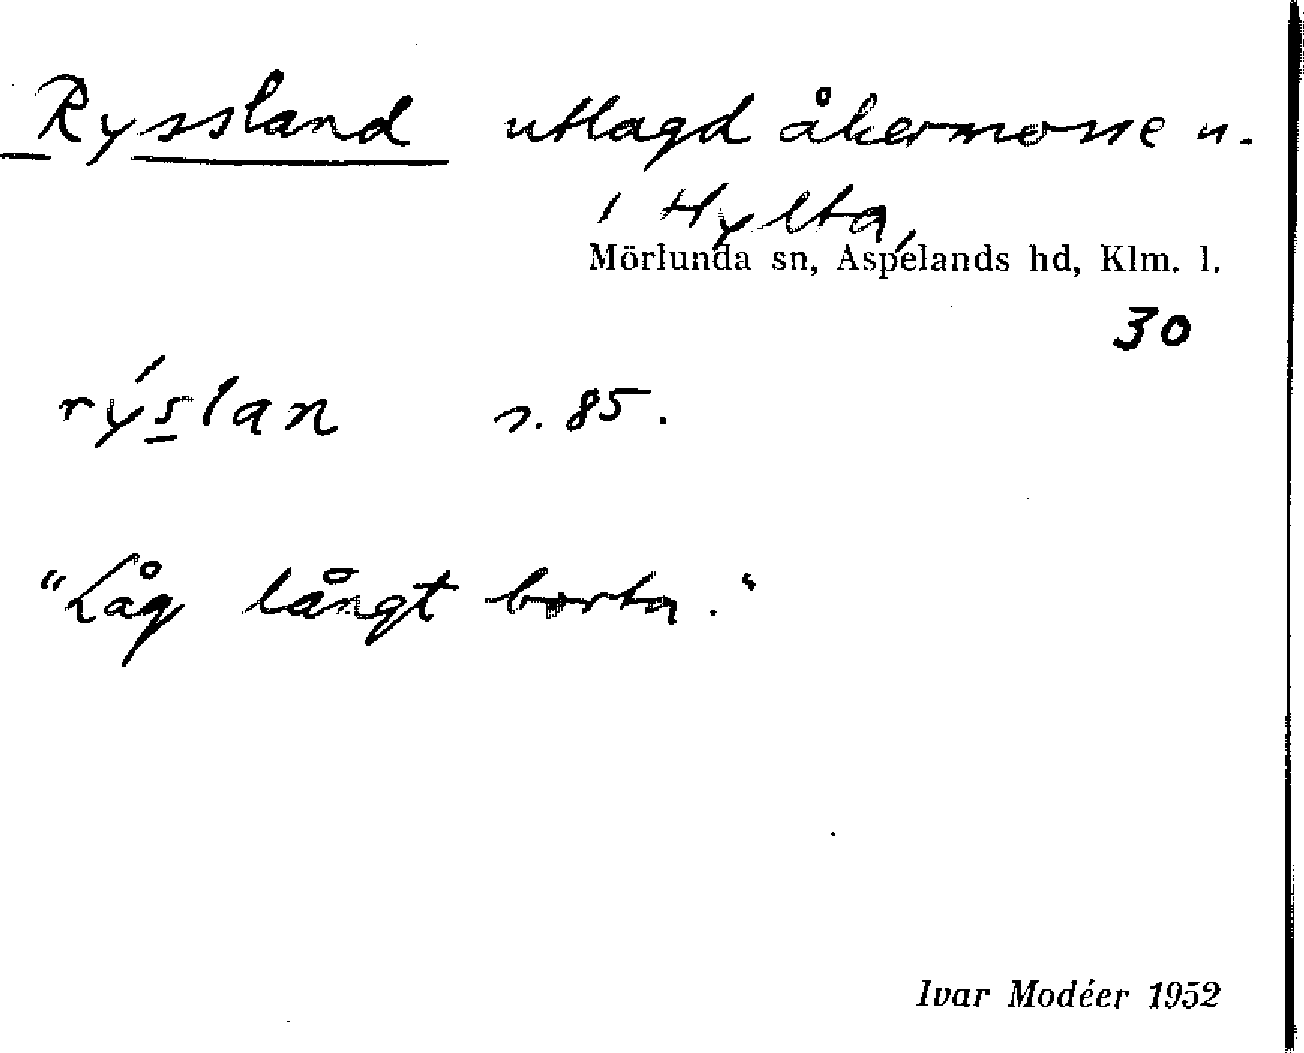 Ryssland utlagd åkermosse n.
i Hylta,
Mörlunda sn, Aspelands hd, Klm. l.
30
rýslan s. 85.
"Låg långt borta."
Ivar Modéer 1952